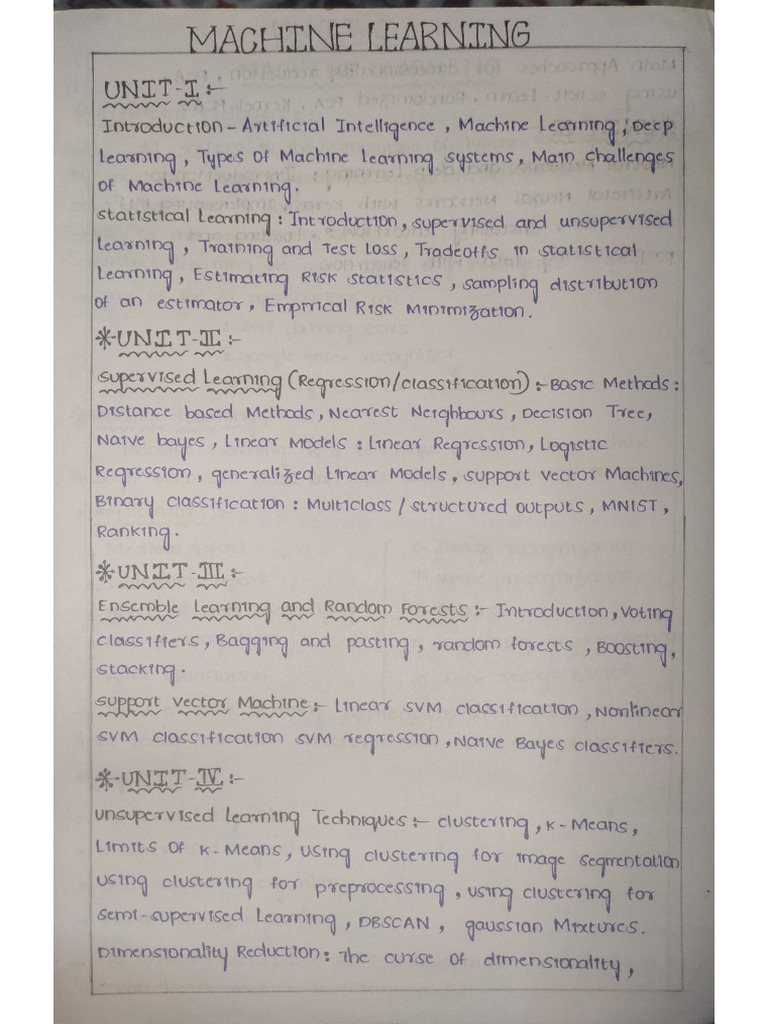 MACHINE LEARNING
UNIT-I :-
Introduction - Artificial Intelligence, Machine Learning, Deep
Learning, Types of Machine Learning systems, Main challenges
of Machine Learning.
statistical Learning : Introduction, supervised and unsupervised
Learning, Training and Test Loss, Tradeoffs in statistical
Learning, Estimating Risk statistics, sampling distribution
of an estimator, Empirical Risk Minimization.
*UNIT-II :-
supervised Learning (Regression/classification) :- Basic Methods :
Distance based Methods, Nearest Neighbours, Decision Tree,
Naive bayes, Linear Models : Linear Regression, Logistic
Regression, generalized Linear Models, support vector Machines,
Binary classification : Multiclass / structured outputs, MNIST,
Ranking.
*UNIT-III :-
Ensemble Learning and Random Forests :- Introduction, voting
classifiers, Bagging and pasting, random forests, Boosting,
stacking.
support vector Machine :- Linear SVM classification, Nonlinear
SVM classification SVM regression, Naive Bayes classifiers.
*UNIT-IV :-
unsupervised Learning Techniques :- clustering, K-Means,
Limits of K-Means, using clustering for image segmentation
using clustering for preprocessing, using clustering for
semi-supervised Learning, DBSCAN, gaussian Mixtures.
Dimensionality Reduction : The curse of dimensionality,